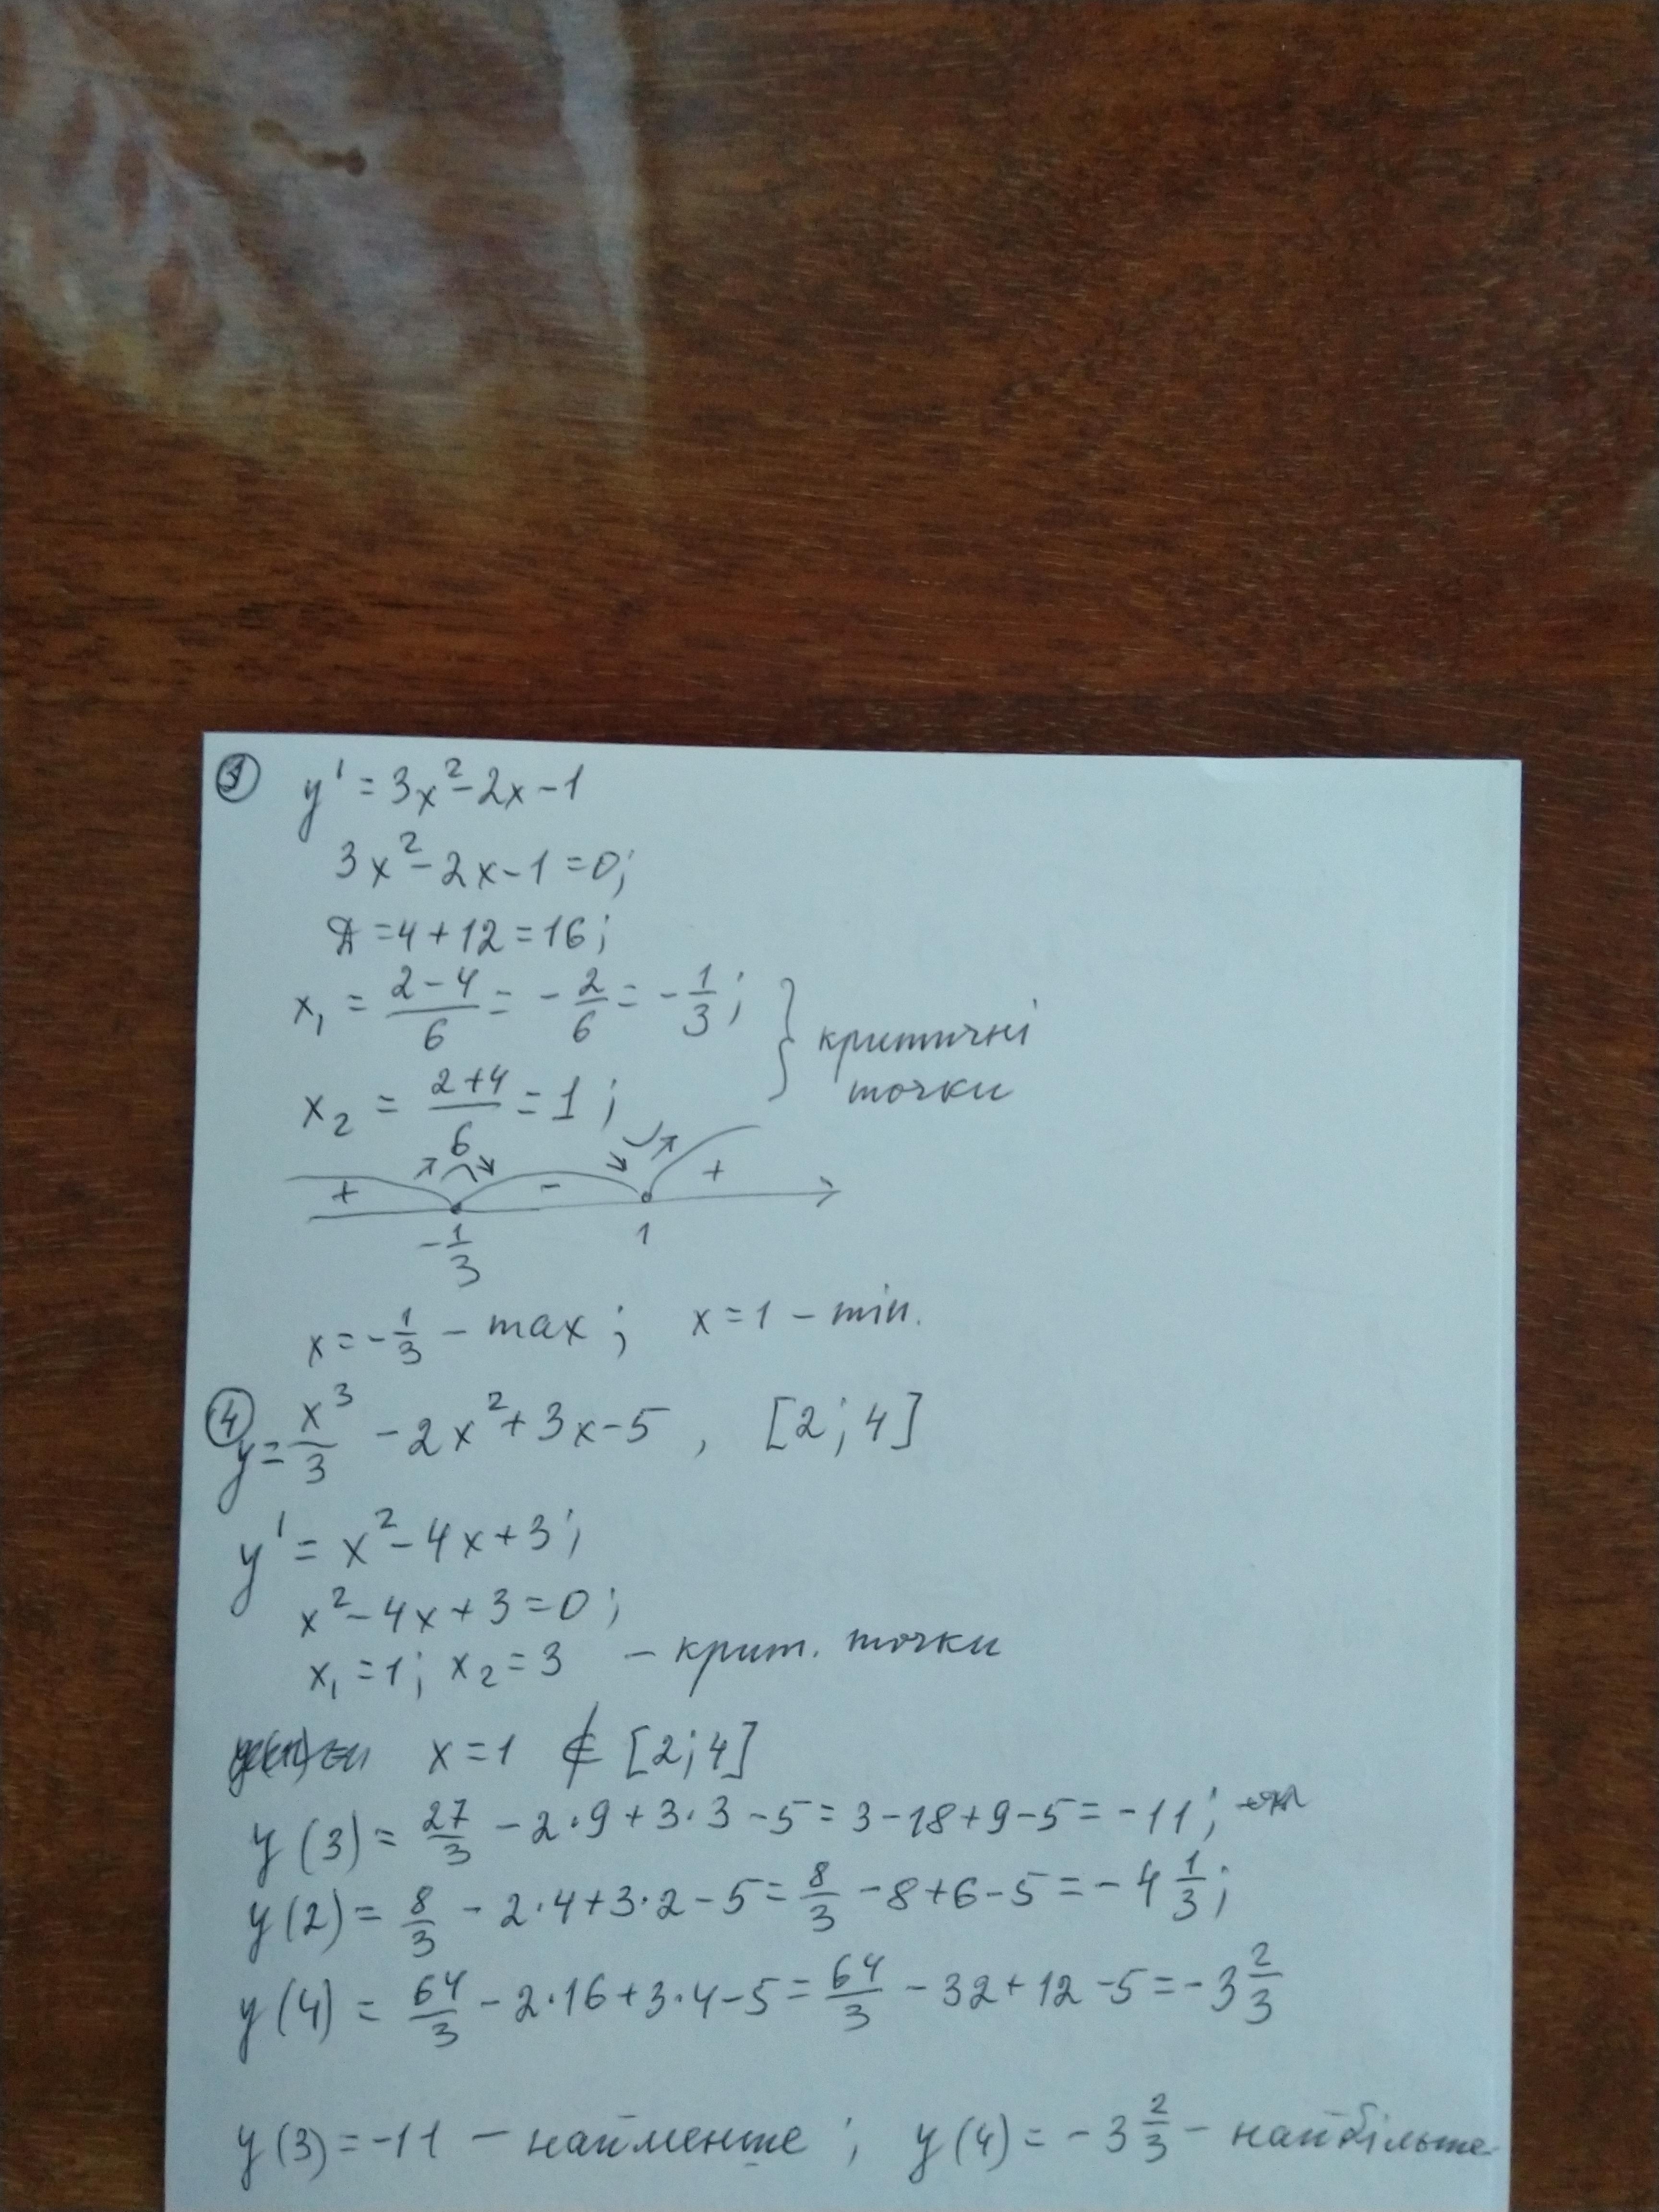 ③ y' = 3x² - 2x - 1
3x² - 2x - 1 = 0;
Д = 4 + 12 = 16;
x₁ = (2 - 4)/6 = - 2/6 = - 1/3;
критичні
x₂ = (2 + 4)/6 = 1;
точки
↗ ↘ ↘ ↗
+ - +
- 1/3 1
x = - 1/3 - max; x = 1 - min.
④ y = x³/3 - 2x² + 3x - 5, [2; 4]
y' = x² - 4x + 3;
x² - 4x + 3 = 0;
x₁ = 1; x₂ = 3 - крит. точки
x = 1 ∉ [2; 4]
y(3) = 27/3 - 2·9 + 3·3 - 5 = 3 - 18 + 9 - 5 = -11;
y(2) = 8/3 - 2·4 + 3·2 - 5 = 8/3 - 8 + 6 - 5 = - 4 1/3;
y(4) = 64/3 - 2·16 + 3·4 - 5 = 64/3 - 32 + 12 - 5 = - 3 2/3
y(3) = -11 - найменше; y(4) = - 3 2/3 - найбільше